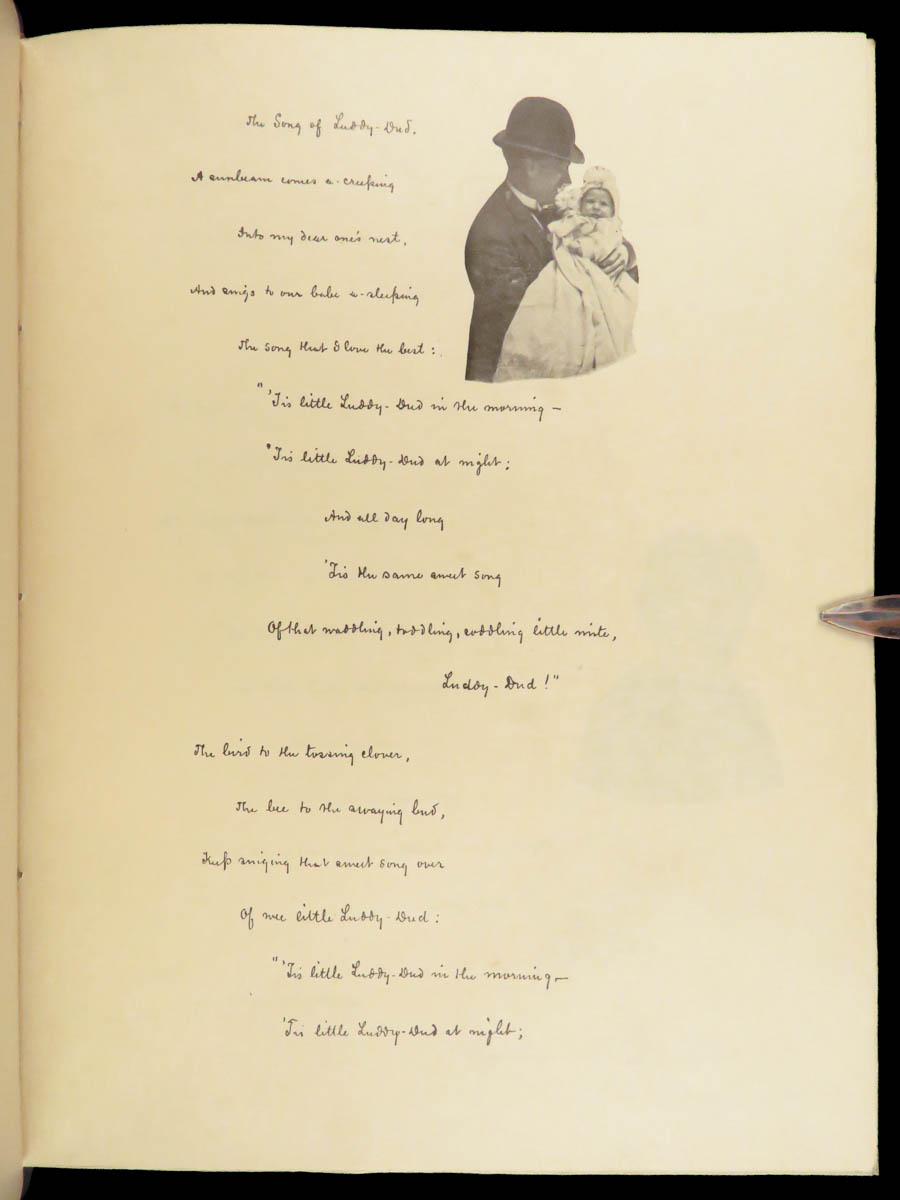 The Song of Luddy-Dud.
A sunbeam comes a-creeping
Into my dear one's nest,
And sings to our babe a-sleeping
The song that I love the best:
"'Tis little Luddy-Dud in the morning—
'Tis little Luddy-Dud at night;
And all day long
'Tis the same sweet song
Of that waddling, toddling, coddling little mite,
Luddy-Dud!"
The bird to the tossing clover,
The bee to the swaying bud,
Keep singing that sweet song over
Of wee little Luddy-Dud:
"'Tis little Luddy-Dud in the morning—
'Tis little Luddy-Dud at night;